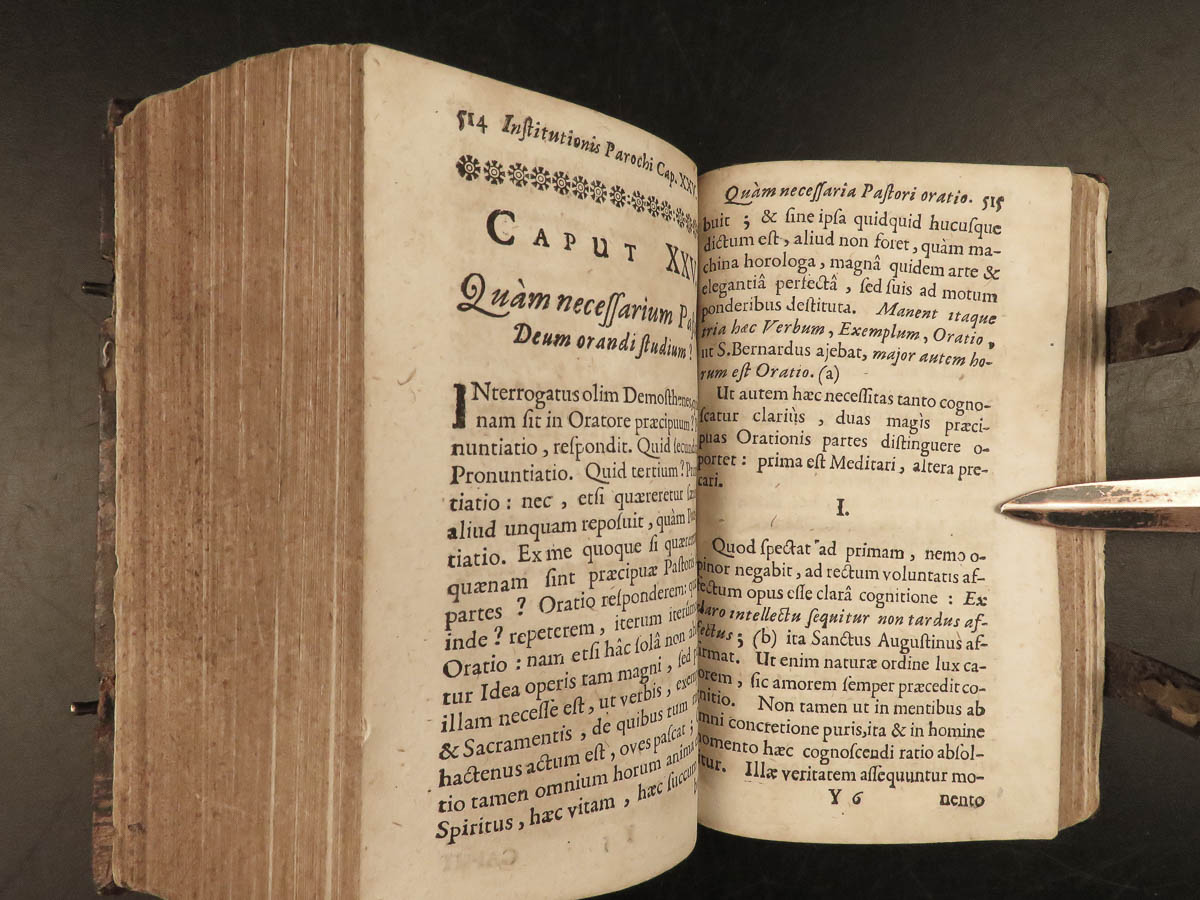 514 Inſtitutionis Parochi Cap. XXV
CAPUT XXV
Quàm neceſſarium
Deum orandi ſtudium?
INterrogatus olim Demoſthenes,
nam ſit in Oratore præcipuum?
nuntiatio, reſpondit. Quid
Pronuntiatio. Quid tertium?
tiatio: nec, etſi quæreretur
aliud unquam repoſuit, quàm
tiatio. Ex me quoque ſi
quænam ſint præcipuæ
partes? Oratio reſponderem:
inde? repeterem, iterum
Oratio: nam etſi hâc ſolâ non
tur Idea operis tam magni, ſed
illam neceſſe est, ut verbis,
& Sacramentis, de quibus tum
hactenus actum eſt, oves paſcat;
tio tamen omnium horum
Spiritus, hæc vitam, hæc
Quàm neceſſaria Paſtori oratio. 515
buit; & ſine ipſa quidquid hucuſque
dictum eſt, aliud non foret, quàm ma-
china horologa, magnâ quidem arte &
elegantiâ perfectâ, ſed ſuis ad motum
ponderibus deſtituta. Manent itaque
tria hæc Verbum, Exemplum, Oratio,
ut S. Bernardus ajebat, major autem ho-
rum eſt Oratio. (a)
Ut autem hæc neceſſitas tanto cogno-
ſcatur clariùs, duas magìs præci-
puas Orationis partes diſtinguere o-
portet: prima eſt Meditari, altera pre-
cari.
I.
Quod ſpectat ad primam, nemo o-
pinor negabit, ad rectum voluntatis af-
fectum opus eſſe clarâ cognitione: Ex
claro intellectu ſequitur non tardus af-
fectus; (b) ita Sanctus Auguſtinus af-
firmat. Ut enim naturæ ordine lux ca-
lorem, ſic amorem ſemper præcedit co-
gnitio. Non tamen ut in mentibus ab
omni concretione puris, ita & in homine
momento hæc cognoſcendi ratio abſol-
itur. Illæ veritatem aſſequuntur mo-
Y 6 nento